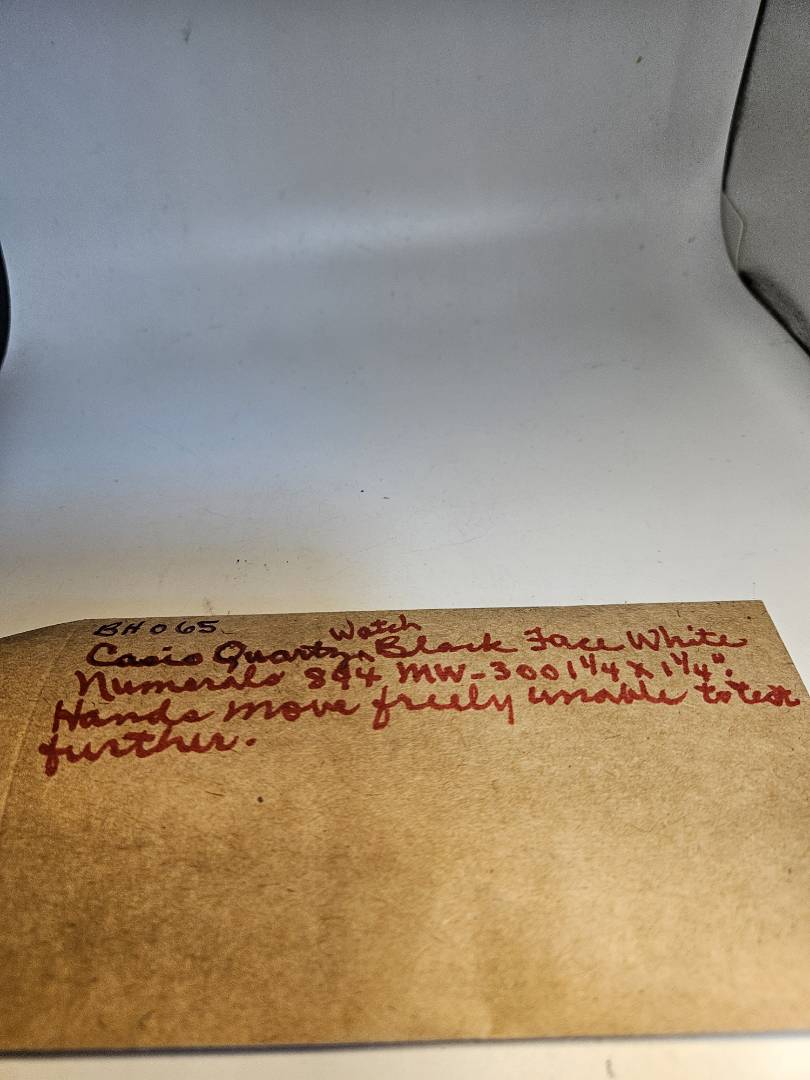 BH065
Casio Quartz Watch Black Face White
Numerals 894 MW-300 1 1/4 x 1 1/4".
Hands move freely unable to test
further.